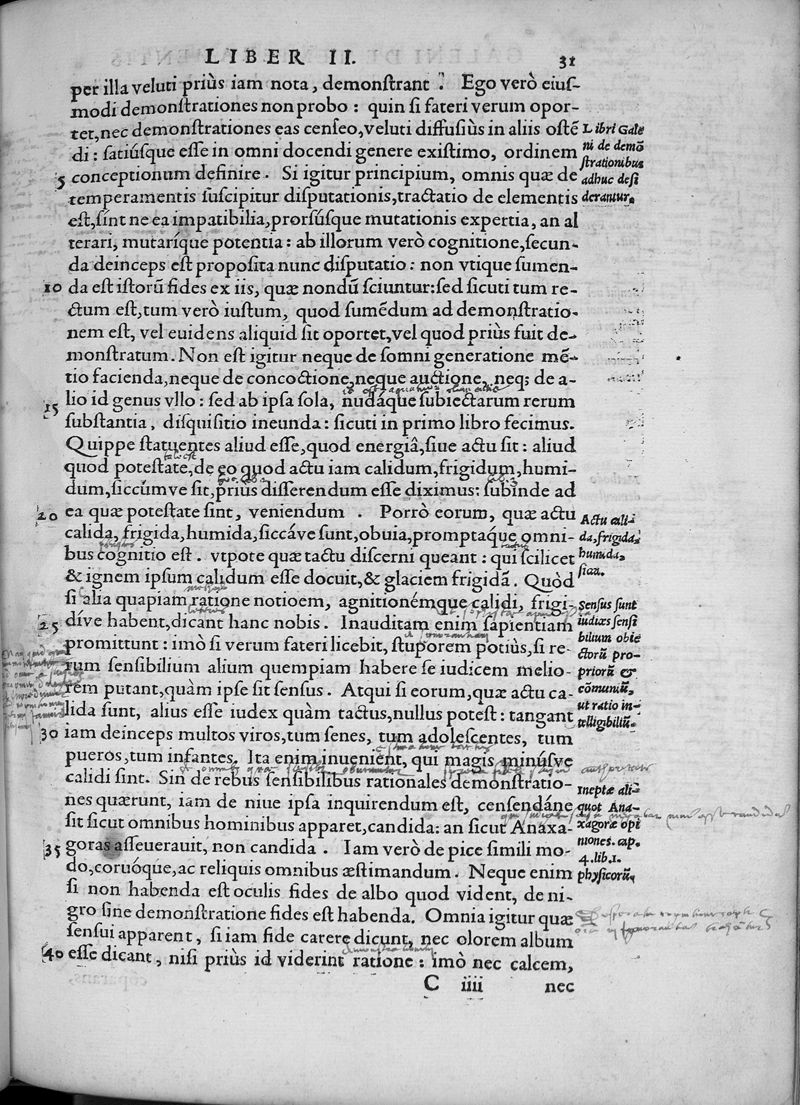 LIBER II. 31
per illa veluti priùs iam nota, demonſtrant. Ego verò eiuſ-
modi demonſtrationes non probo: quin ſi fateri verum opor-
tet, nec demonſtrationes eas cenſeo, veluti diffuſiùs in aliis oſtẽ
di: ſatiúſque eſſe in omni docendi genere exiſtimo, ordinem
5 conceptionum definire. Si igitur principium, omnis quæ de
temperamentis ſuſcipitur diſputationis, tractatio de elementis
eſt, ſint ne ea impatibilia, prorſúſque mutationis expertia, an al
terari, mutaríque potentia: ab illorum verò cognitione, ſecun-
da deinceps eſt propoſita nunc diſputatio: non vtique ſumen-
10 da eſt iſtorũ fides ex iis, quæ nondũ ſciuntur: ſed ſicuti tum re-
ctum eſt, tum verò iuſtum, quod ſumẽdum ad demonſtratio-
nem eſt, vel euidens aliquid ſit oportet, vel quod priùs fuit de-
monſtratum. Non eſt igitur neque de ſomni generatione mẽ-
tio facienda, neque de concoctione, neque auctione, neq; de a-
15 lio id genus vllo: ſed ab ipſa ſola, nudáque ſubiectarum rerum
ſubſtantia, diſquiſitio ineunda: ſicuti in primo libro fecimus.
Quippe ſtatuentes aliud eſſe, quod energiâ, ſiue actu ſit: aliud
quod poteſtate, de eo quod actu iam calidum, frigidum, humi-
dum, ſiccúmve ſit, priùs differendum eſſe diximus: ſubinde ad
20 ea quæ poteſtate ſint, veniendum. Porrò eorum, quæ actu
calida, frigida, humida, ſiccáve ſunt, obuia, promptaque omni-
bus cognitio eſt. vtpote quæ tactu diſcerni queant: qui ſcilicet
& ignem ipſum calidum eſſe docuit, & glaciem frigidã. Quòd
ſi alia quapiam ratione notioem, agnitionémque calidi, frigi-
25 díve habent, dicant hanc nobis. Inauditam enim ſapientiam
promittunt: imò ſi verum fateri licebit, ſtuporem potiùs, ſi re-
rum ſenſibilium alium quempiam habere ſe iudicem melio-
rem putant, quàm ipſe ſit ſenſus. Atqui ſi eorum, quæ actu ca-
lida ſunt, alius eſſe iudex quàm tactus, nullus poteſt: tangant
30 iam deinceps multos viros, tum ſenes, tum adoleſcentes, tum
pueros, tum infantes. Ita enim inuenient, qui magis minúſve
calidi ſint. Sin de rebus ſenſibilibus rationales demonſtratio-
nes quærunt, iam de niue ipſa inquirendum eſt, cenſendáne
ſit ſicut omnibus hominibus apparet, candida: an ſicut Anaxa-
35 goras aſſeuerauit, non candida. Iam verò de pice ſimili mo-
do, coruóque, ac reliquis omnibus æſtimandum. Neque enim
ſi non habenda eſt oculis fides de albo quod vident, de ni-
gro ſine demonſtratione fides eſt habenda. Omnia igitur quæ
ſenſui apparent, ſi iam fide carere dicunt, nec olorem album
40 eſſe dicant, niſi priùs id viderint ratione: imò nec calcem,
C iiii nec
Libri Gale
ni de demõ
ſtrationibus
adhuc deſi
derantur.
Actu cali-
da, frigida,
humida,
ſicca.
Senſus ſunt
iudices ſenſi
bilium obie
ctorũ pro-
priorũ &
cõmuniũ,
ut ratio in-
telligibiliũ.
Ineptæ ali-
quot Ana-
xagoræ opi
niones. cap.
4. lib. 1.
phyſicorũ.